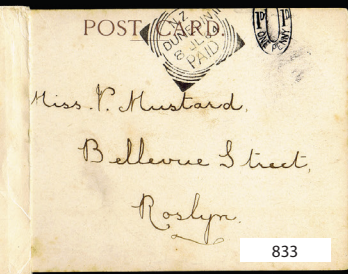 POST CARD
N.Z.
DUNEDIN
8 JL
PAID
1D 1D
ONE PENNY
Miss. V. Mustard.
Bellevue Street,
Roslyn.
833